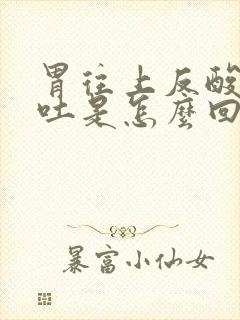 胃往上反酸
吐是怎麼回
暴富小仙女